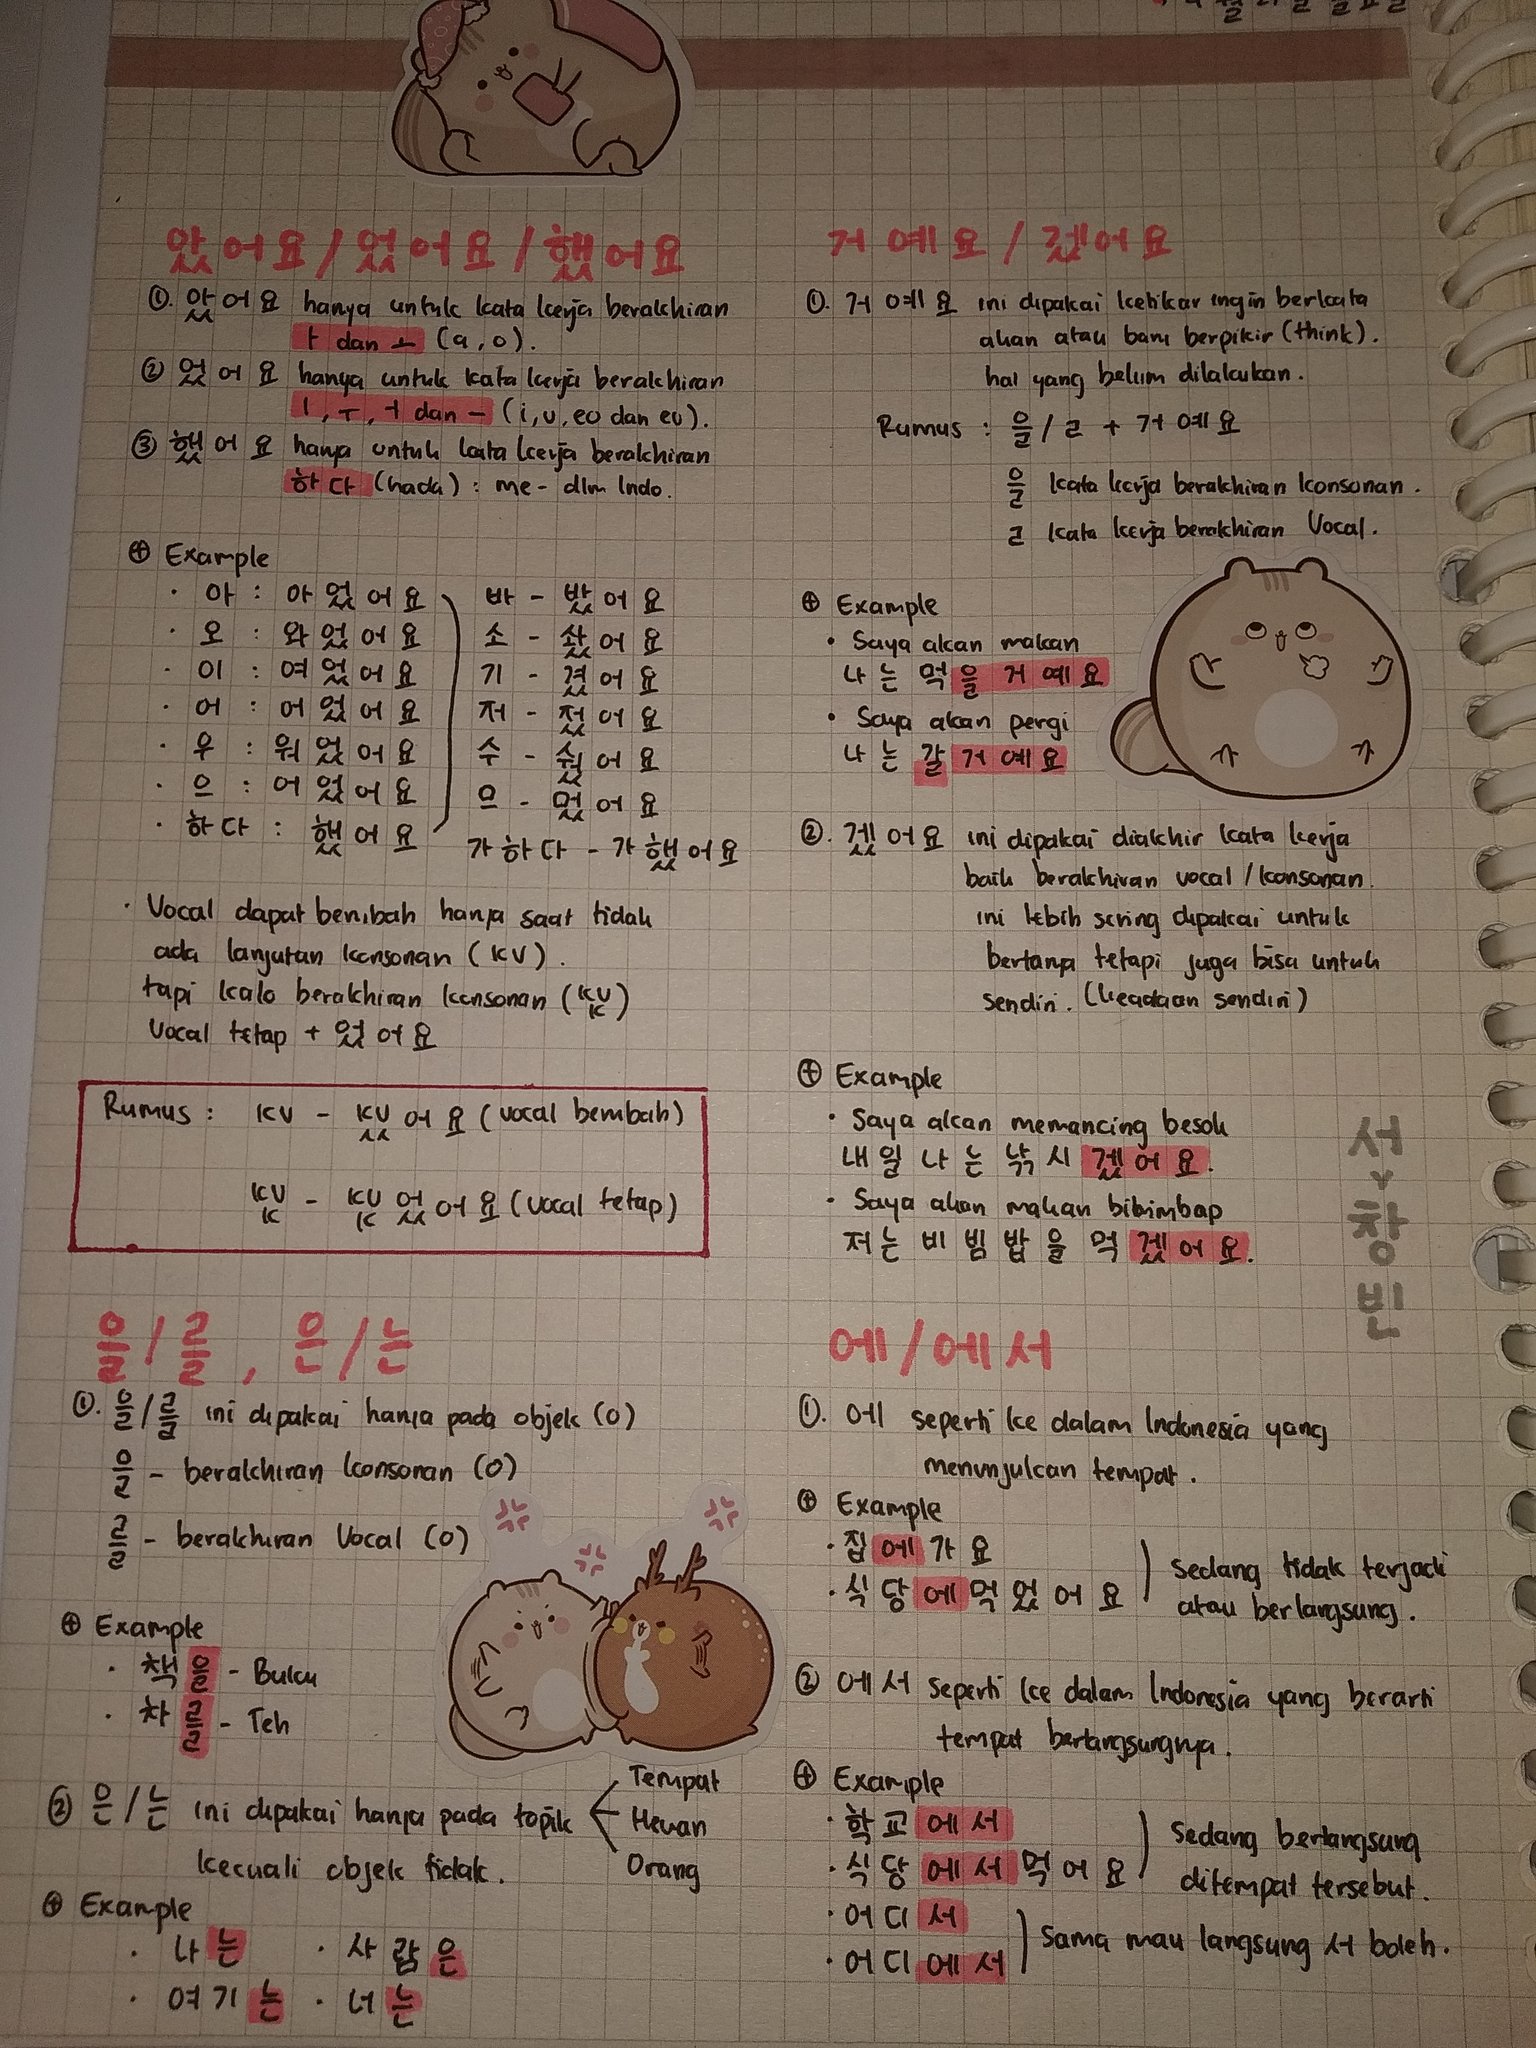 았어요/었어요/했어요
①. 았어요 hanya untuk kata kerja berakhiran
ㅏ dan ㅗ (a, o).
② 었어요 hanya untuk kata kerja berakhiran
ㅣ, ㅜ, ㅓ dan ㅡ (i, u, eo dan eu).
③ 했어요 hanya untuk kata kerja berakhiran
하다 (hada) : me- dlm Indo.
⊕ Example
· 아 : 아었어요
· 오 : 와었어요
· 이 : 여었어요
· 어 : 어었어요
· 우 : 워었어요
· 으 : 어었어요
· 하다 : 했어요
바 - 밨어요
소 - 솼어요
기 - 겼어요
저 - 젔어요
수 - 숬어요
으 - 멌어요
가하다 - 가했어요
· Vocal dapat berubah hanya saat tidak
ada lanjutan konsonan (KV).
tapi kalo berakhiran konsonan (KVK)
Vocal tetap + 었어요
Rumus : KV - KVㅆ어요 (vocal berubah)
KVK - KVK었어요 (vocal tetap)
을/를, 은/는
①. 을/를 ini dipakai hanya pada objek (O)
을 - berakhiran konsonan (O)
를 - berakhiran Vocal (O)
⊕ Example
· 책을 - Buku
· 차를 - Teh
② 은/는 ini dipakai hanya pada topik
Tempat
Hewan
Orang
kecuali objek tidak.
⊕ Example
· 나는 · 사람은
· 여기는 · 너는
거예요/겠어요
①. 거예요 ini dipakai ketika ingin berkata
akan atau baru berpikir (think).
hal yang belum dilakukan.
Rumus : 을/ㄹ + 거예요
을 kata kerja berakhiran konsonan.
ㄹ kata kerja berakhiran Vocal.
⊕ Example
· Saya akan makan
나는 먹을 거예요
· Saya akan pergi
나는 갈 거예요
②. 겠어요 ini dipakai diakhir kata kerja
baik berakhiran vocal/konsonan.
ini lebih sering dipakai untuk
bertanya tetapi juga bisa untuk
sendiri. (keadaan sendiri)
⊕ Example
· Saya akan memancing besok
내일 나는 낚시 겠어요.
· Saya akan makan bibimbap
저는 비빔밥을 먹겠어요.
서창빈
에/에서
①. 에 seperti ke dalam Indonesia yang
menunjukan tempat.
⊕ Example
· 집에 가요
· 식당에 먹었어요
Sedang tidak terjadi
atau berlangsung.
② 에서 seperti ke dalam Indonesia yang berarti
tempat berlangsungnya.
⊕ Example
· 학교에서
· 식당에서 먹어요
Sedang berlangsung
ditempat tersebut.
· 어디서
· 어디에서
Sama mau langsung 서 boleh.